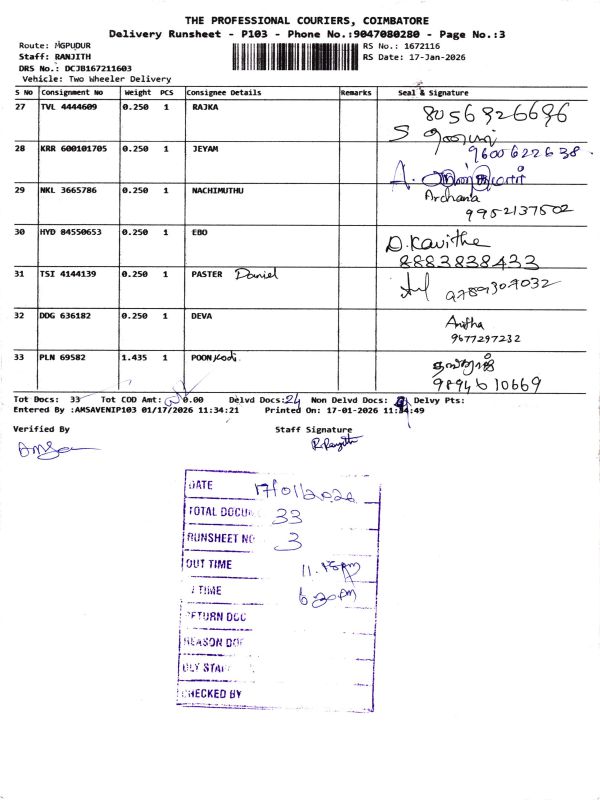 THE PROFESSIONAL COURIERS, COIMBATORE
Delivery Runsheet - P103 - Phone No.:9047080280 - Page No.:3
Route: MGPUDUR
RS No.: 1672116
Staff: RANJITH
RS Date: 17-Jan-2026
DRS No.: DCJB167211603
Vehicle: Two Wheeler Delivery
S NO Consignment No Weight PCS Consignee Details Remarks Seal & Signature
27 TVL 4444609 0.250 1 RAJKA
8056926696
28 KRR 600101705 0.250 1 JEYAM
9600622638
29 NKL 3665786 0.250 1 NACHIMUTHU
Archana
9952137502
30 HYD 84550653 0.250 1 EBO
D.Kavitha
8883838433
31 TSI 4144139 0.250 1 PASTER Daniel
9789307032
32 DDG 636182 0.250 1 DEVA
Anitha
9677297232
33 PLN 69582 1.435 1 POONKodi
9894610669
Tot Docs: 33 Tot COD Amt: 0.00 Delvd Docs:24 Non Delvd Docs: 9 Delvy Pts:
Entered By :AMSAVENIP103 01/17/2026 11:34:21 Printed On: 17-01-2026 11:34:49
Verified By Staff Signature
R.Ranjith
DATE 17/01/2026
TOTAL DOCU 33
RUNSHEET NO 3
OUT TIME
TIME 6:30pm
RETURN DOC
REASON DOC
DLY STAF
CHECKED BY